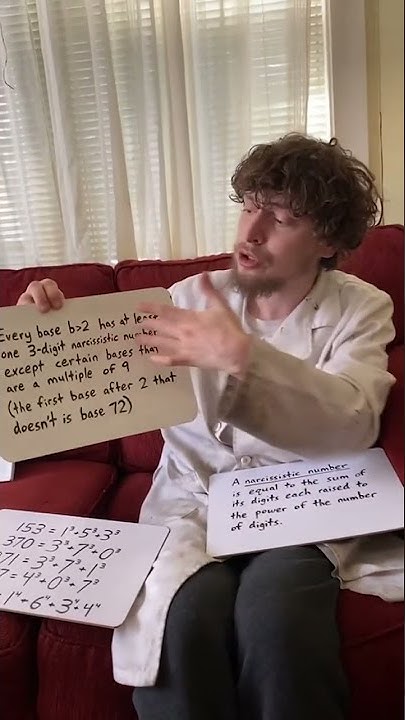 Every base b>2 has at least
one 3-digit narcissistic number
except certain bases that
are a multiple of 9
(the first base after 2 that
doesn't is base 72)
A narcissistic number
is equal to the sum of
its digits each raised to
the power of the number
of digits.
153 = 1³+5³+3³
370 = 3³+7³+0³
71 = 3³+7³+1³
7 = 4³+0³+7³
1⁴+6⁴+3⁴+4⁴